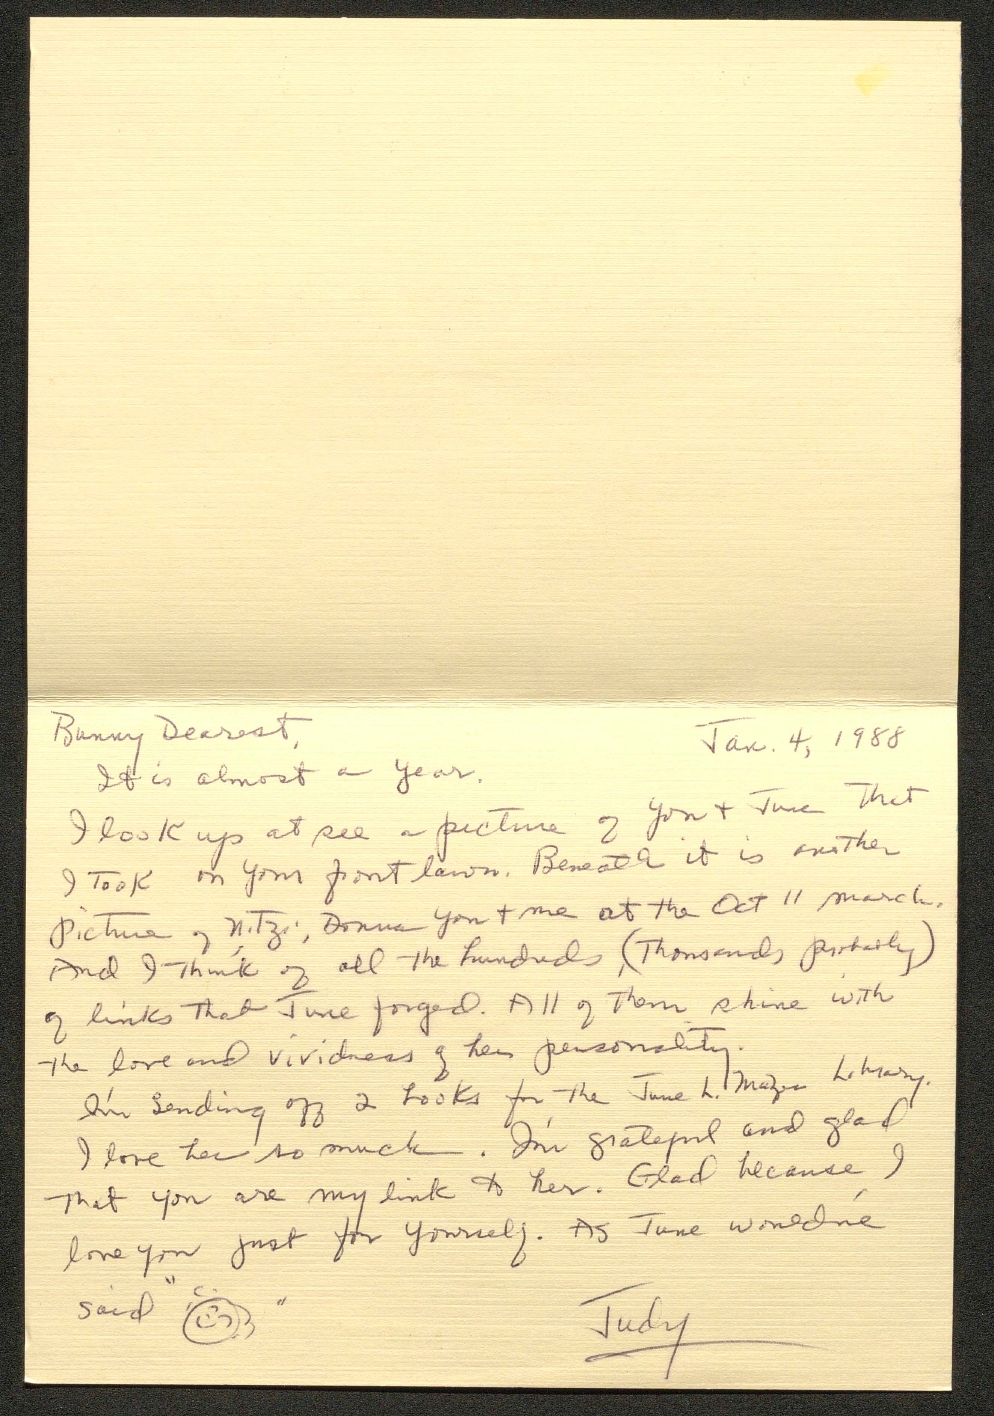 Bunny Dearest,
Jan. 4, 1988
It is almost a year.
I look up at see a picture of you + June that
I took on your front lawn. Beneath it is another
picture of Nitzi, Donna you + me at the Oct 11 march.
And I think of all the hundreds (Thousands probably)
of links that June forged. All of them shine with
the love and vividness of her personality.
I'm sending off 2 books for the June L. Mazer Library.
I love her so much. I'm grateful and glad
that you are my link to her. Glad because I
love you just for yourself. As June would've
said " "
Judy